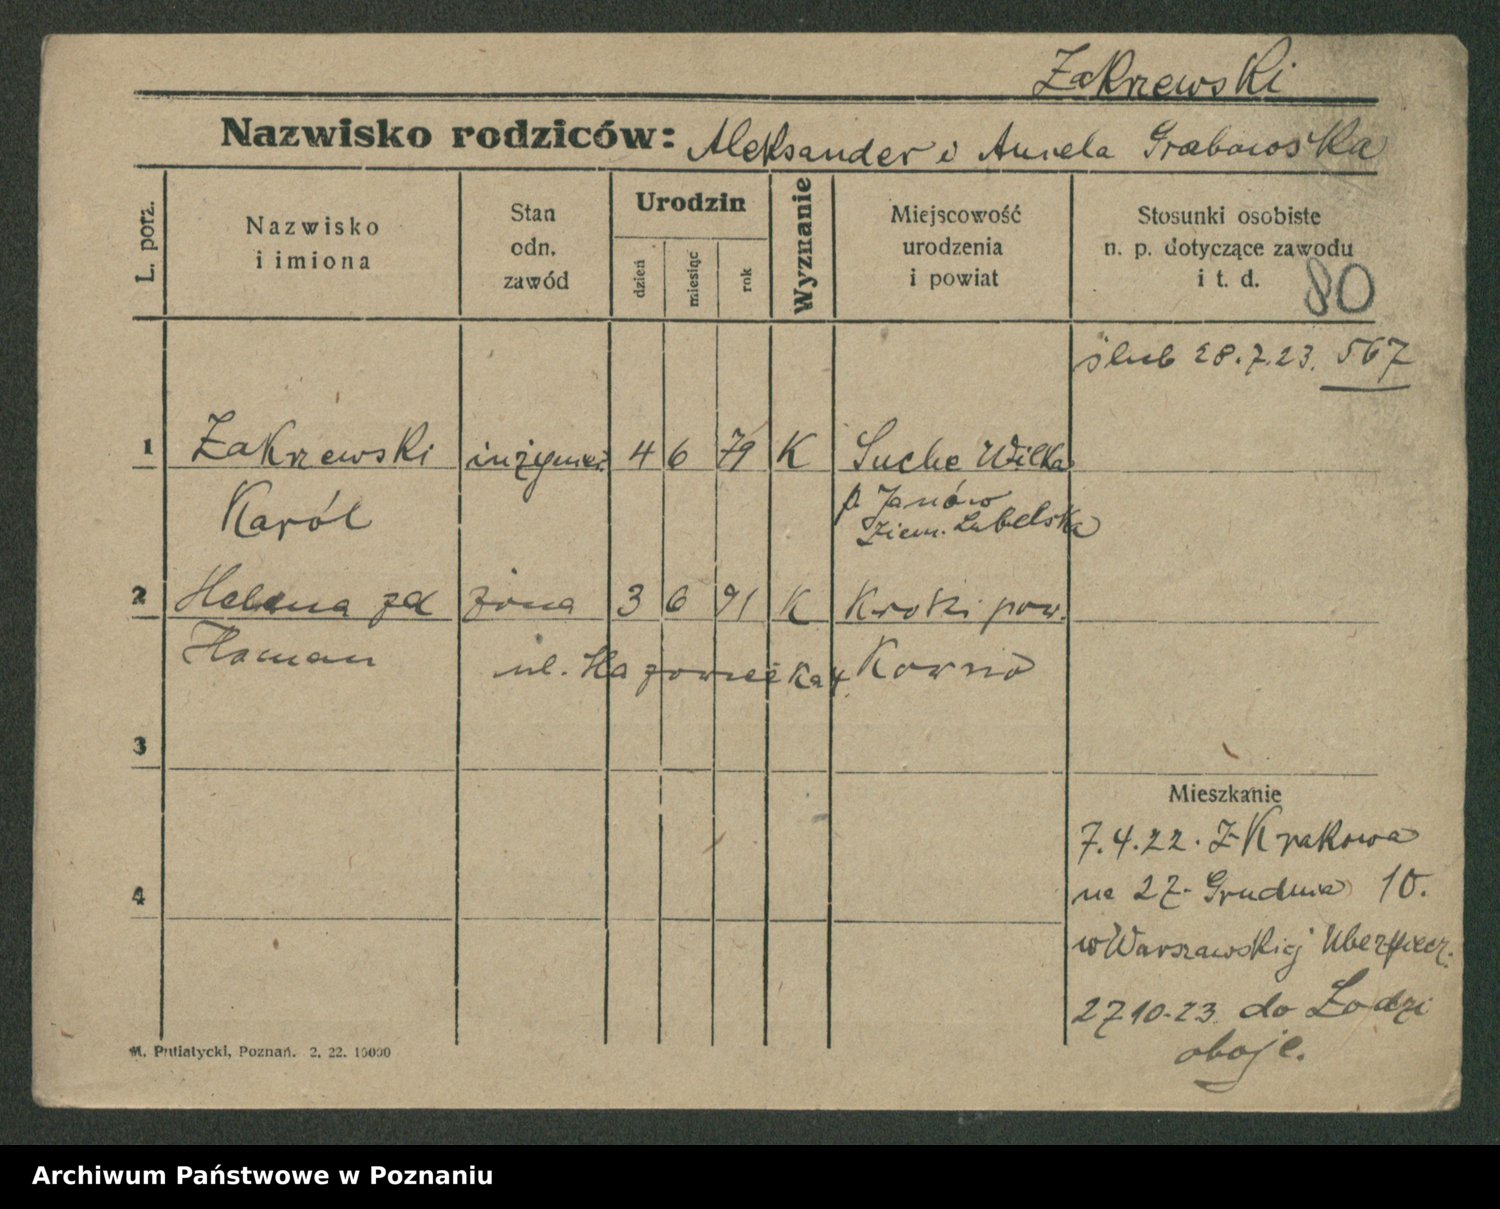 Zakrzewski
Nazwisko rodziców: Aleksander i Aurela Grabowska
L. porz.
Nazwisko
i imiona
Stan
odn.
zawód
Urodzin
dzień
miesiąc
rok
Wyznanie
Miejscowość
urodzenia
i powiat
Stosunki osobiste
n. p. dotyczące zawodu
i t. d.
80
ślub 28.7.23. 567
1 Zakrzewski inżynier 4 6 79 K Suche Wilka
Karól
p Janów
ziem. Lubelska
2 Helena zd żona 3 6 91 K Kroki pow.
Haman ul. Mazowiecka 4 Kowno
3
Mieszkanie
7.4.22. z Krakowa
4
na 27 Grudnia 10.
w Warszawskiej Ubezpiecz.
27 10.23 do Łodzi
oboje.
M. Putiatycki, Poznań. 2. 22. 10000
Archiwum Państwowe w Poznaniu